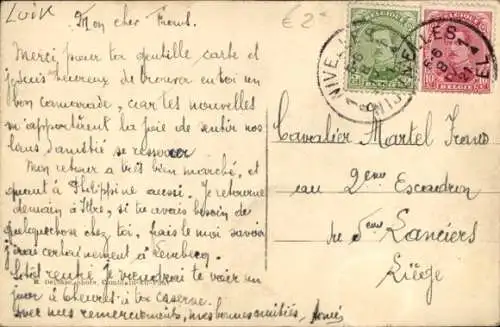 Luik
€ 2
Mon cher Franz.
Merci pour ta gentille carte et
je suis heureux de trouver en toi un
bon camarade, car tes nouvelles
m'apportent la joie de sentir nos
liens d'amitié se resserrer
Mon retour a très bien marché, et
quant à Philippine aussi. Je retourne
demain à Ittre, si tu avais besoin de
quelquechose chez toi, fais le moi savoir
j'irai certainement à Lembecq.
Sitôt rentré je viendrai te voir un
jour à cheures à ta caserne.
Avec mes remerciements, mes bonnes amitiés,
Cavalier Martel Franz
au 2eme Escadron
du 5eme Lanciers
Liège
NIVELLES
NIJVEL
BELGIQUE
BELGIË